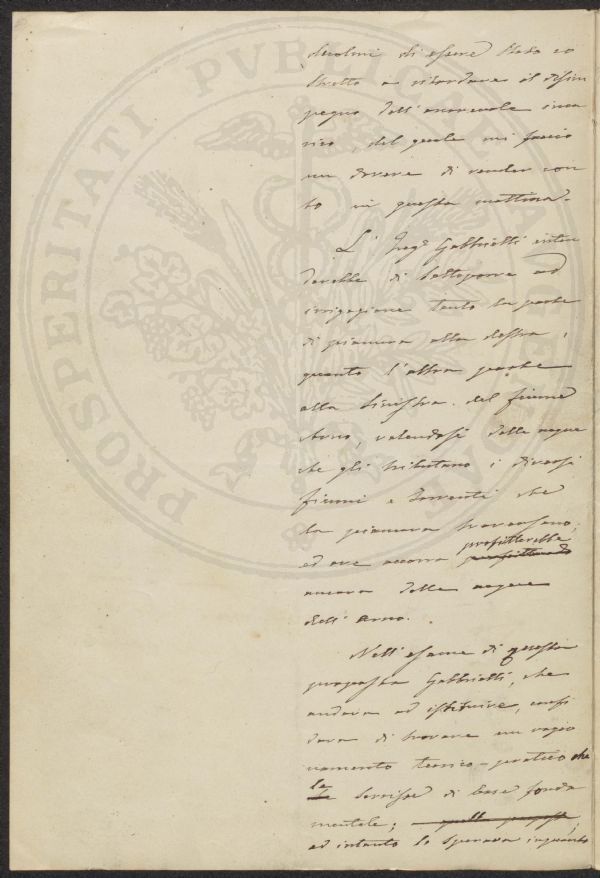 duolmi di essere stato co
stretto a ritardare il disim
pegno dell'onorevole inca
rico, del quale mi faccio
un dovere di render con
to in questa mattina.
L' Ing.e Gabbrielli inten
derebbe di sottoporre ad
irrigazione tanto la parte
di pianura alla destra,
quanto l'altra parte
alla sinistra del fiume
Arno, valendosi delle acque
che gli tributano i diversi
fiumi e torrenti che
la pianura traversano;
ed ove occorra profitterebbe
ancora delle acque
dell'Arno.
Nell'esame di questa
proposta Gabbrielli, che
andava ad istituire, confi
dava di trovare un ragio
namento teorico-pratico che
le servisse di base fonda
mentale;
ed intanto lo sperava inquanto
PROSPERITATI PUBLICAE AUGENDAE